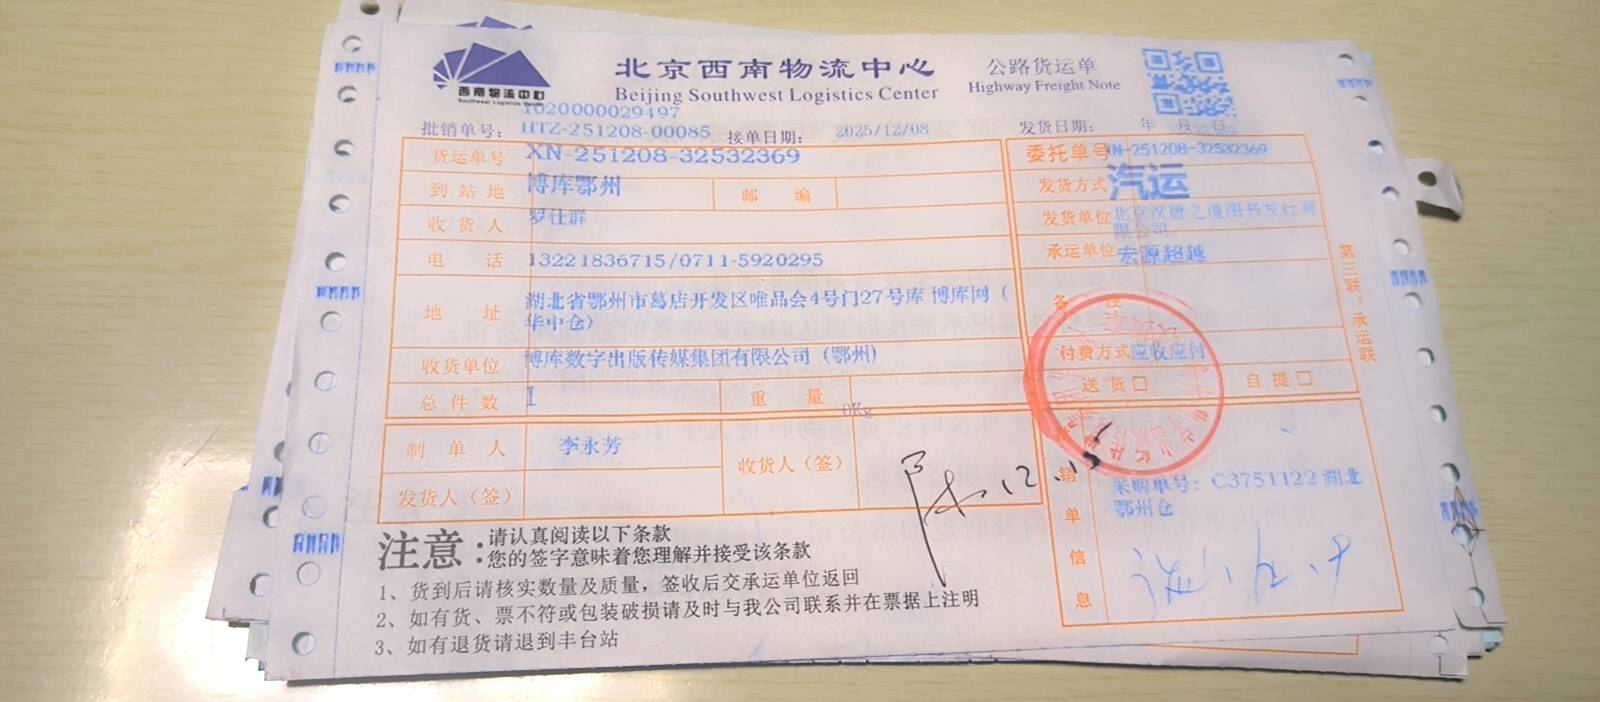 西南物流中心
Southwest Logistics Center
北京西南物流中心
Beijing Southwest Logistics Center
公路货运单
Highway Freight Note
1020000029497
批销单号: HTZ-251208-00085 接单日期: 2025/12/08 发货日期: 年 月 日
货运单号 XN-251208-32532369
委托单号 XN-251208-32532369
到站地 博库鄂州 邮编
发货方式 汽运
收货人 罗仕群
发货单位 北京汉唐之道图书发行有限公司
电话 13221836715/0711-5920295
承运单位 宏源超越
地址 湖北省鄂州市葛店开发区唯品会4号门27号库 博库网(华中仓)
备注
收货单位 博库数字出版传媒集团有限公司(鄂州)
付费方式 应收应付
总件数 1 重量 0Kg
送货□ 自提□
制单人 李永芳
收货人(签) 12.15
发货人(签)
销单信息
采购单号: C3751122 湖北
鄂州仓
第三联:承运联
注意:
请认真阅读以下条款
您的签字意味着您理解并接受该条款
1、货到后请核实数量及质量,签收后交承运单位返回
2、如有货、票不符或包装破损请及时与我公司联系并在票据上注明
3、如有退货请退到丰台站